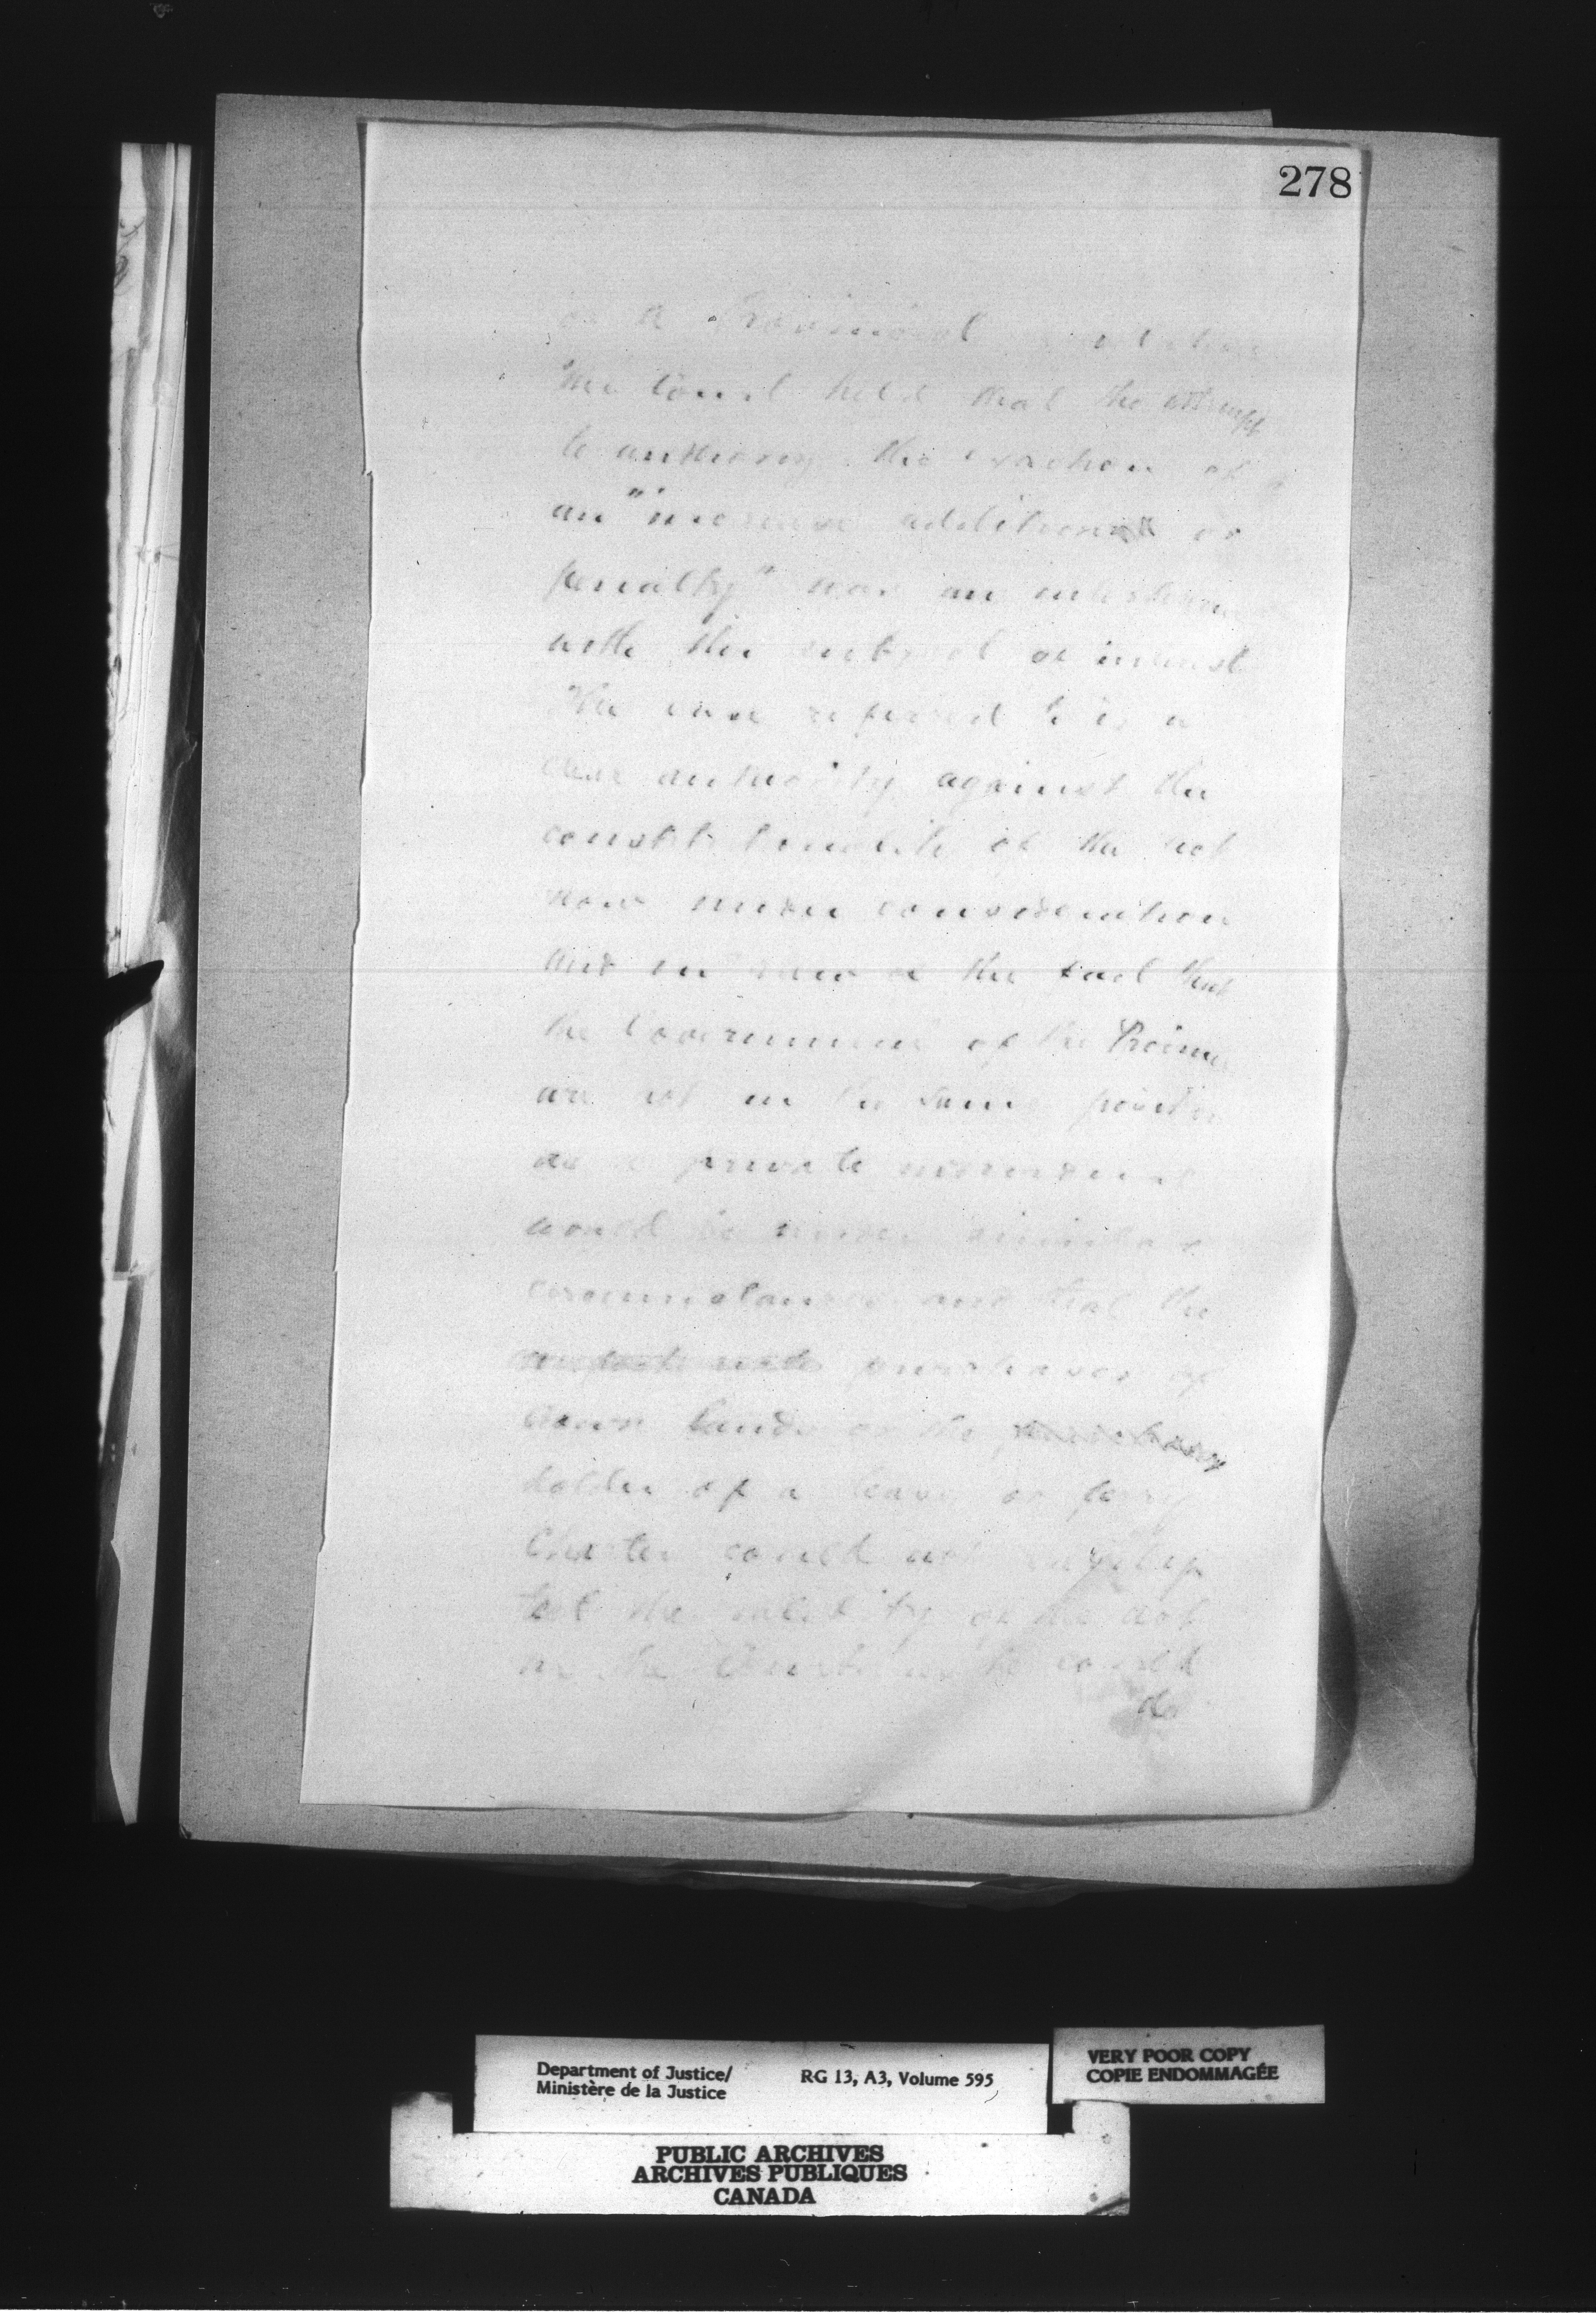 278
or a Provincial
The Court held that the attempt
to authorize the exaction of
an "increase additional or
penalty" was an interference
with the subject of interest
The case referred to is a
clear authority against the
constitutionality of the Act
now under consideration
and in view of the fact that
the Government of the Province
are not in the same position
as a private individual
would be under similar
circumstances and that the
purchaser of
Crown lands or the
holder of a lease or ferry
Charter could not
test the validity of the Act
in the Courts as he could
the
Department of Justice/
Ministère de la Justice
RG 13, A3, Volume 595
VERY POOR COPY
COPIE ENDOMMAGÉE
PUBLIC ARCHIVES
ARCHIVES PUBLIQUES
CANADA